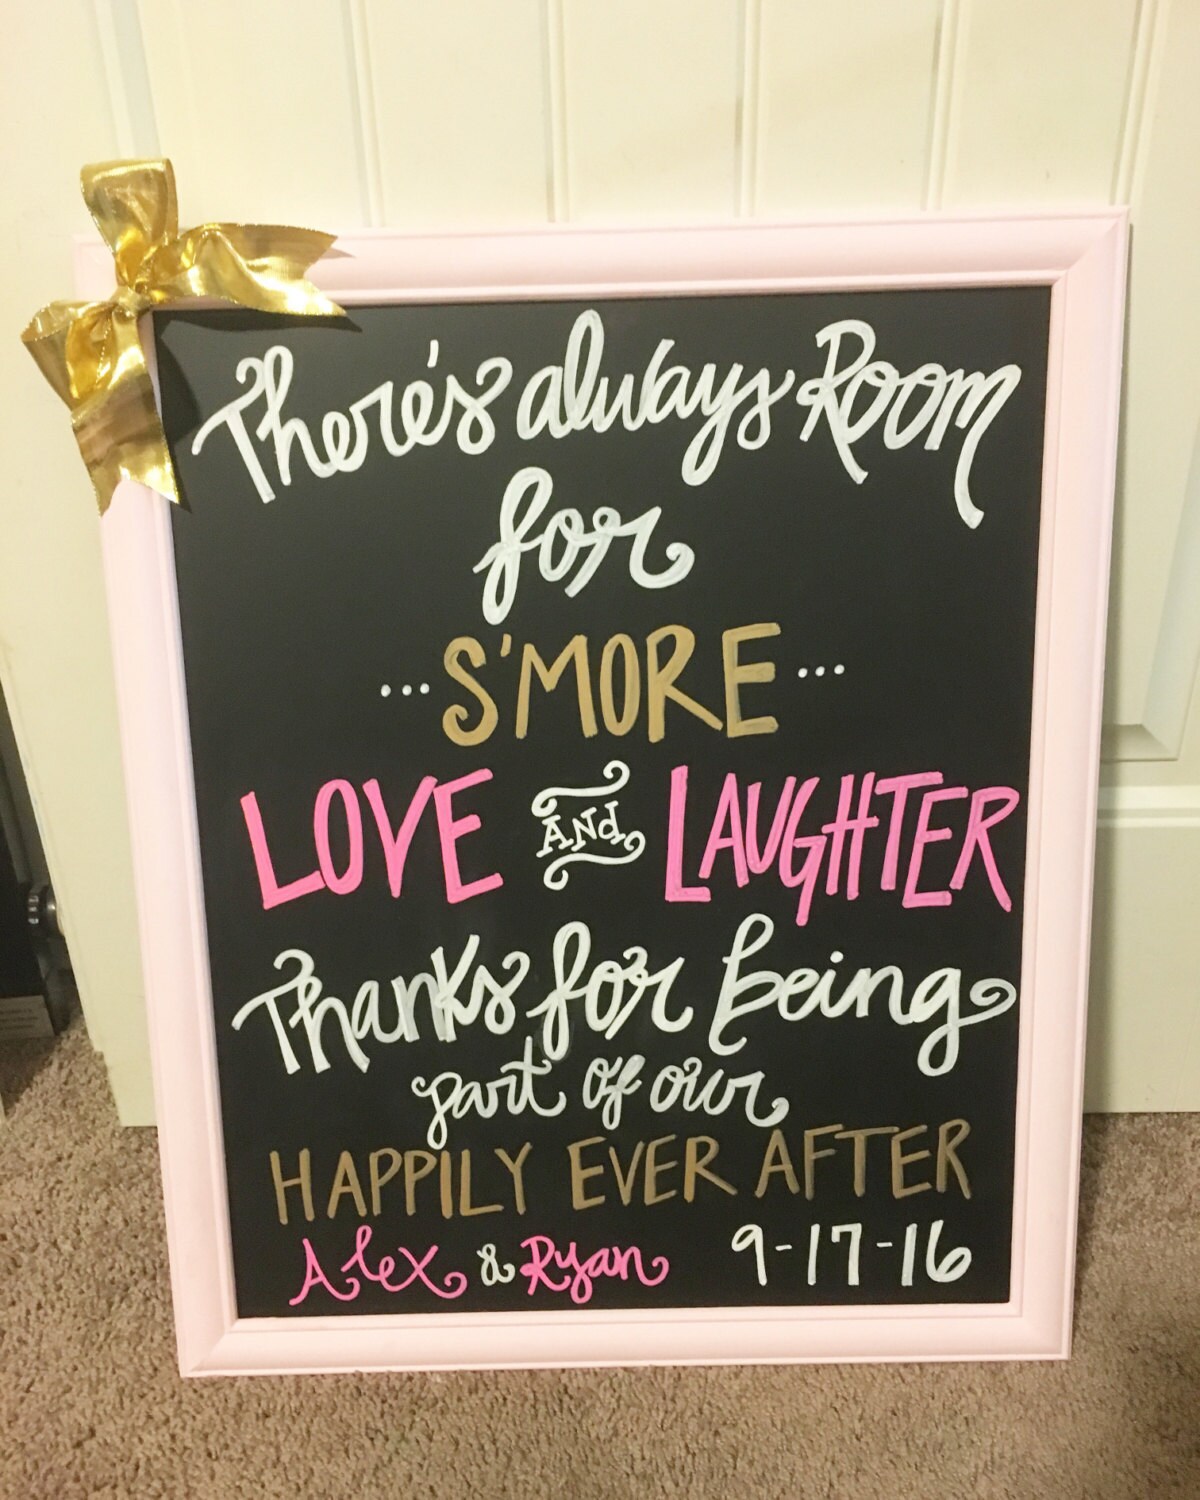 There's always Room
for
...S'MORE...
LOVE AND LAUGHTER
Thanks for being
part of our
HAPPILY EVER AFTER
Alex & Ryan 9-17-16